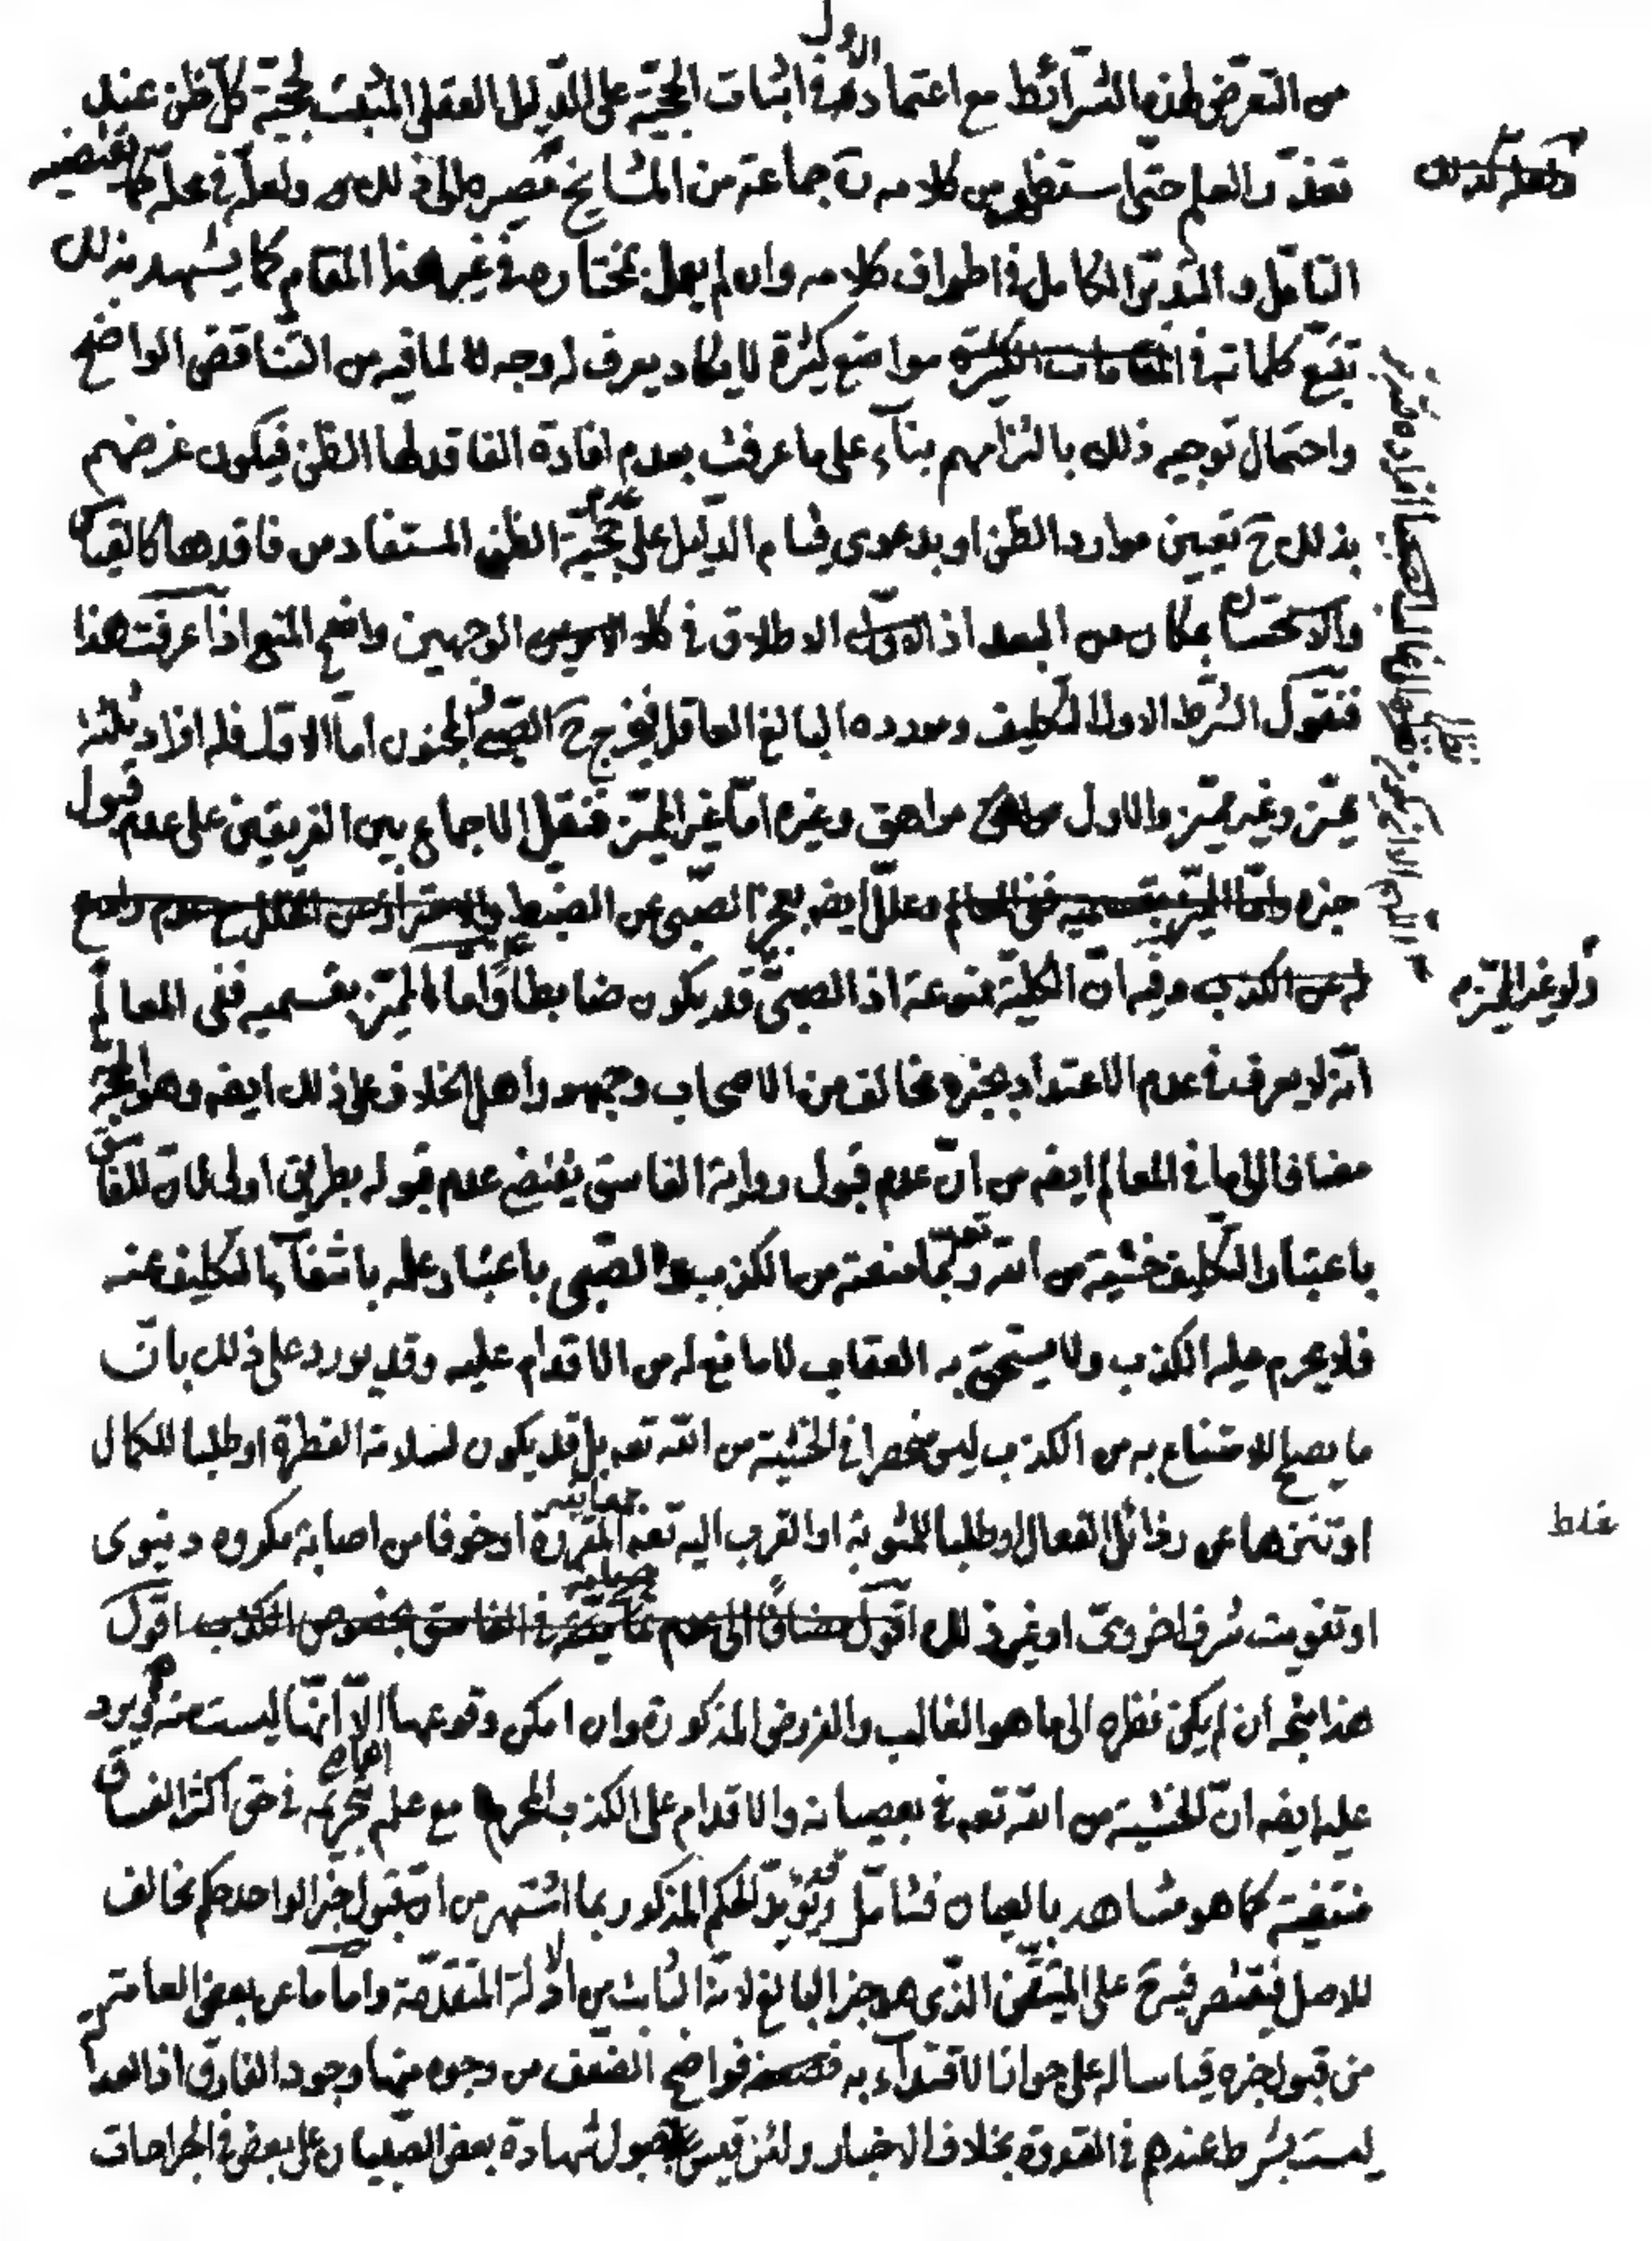 الاول
من التعرّض لهذه الشرائط مع اعتماده في اثبات الحجّيّة على الدّليل العقلى المثبت لحجّيّة كلّ ظن عند
تعذّر العلم حتّى استظهر من كلامه انّ جماعة من المشايخ مصيرهم الى ذلك ولعلّه في محلّه كما يقتضيه
التأمّل و التّدبّر الكامل في اطراف كلامه وان لم يعمل بمختاره في غير هذا المقام كما يشهد بذلك
تتبّع كلماته في المقامات الكثيرة مواضع كثيرة لا يكاد يعرف له وجه لما فيه من التّناقض الواضح
واحتمال توجيه ذلك بالتزامهم بنآء على ما عرفت بعدم افادة الفاقد لها الظّن فيكون غرضهم
بذلك ح تعيين موارد الظّن او بدعوى قيام الدّليل على عدم حجّيّة الظّن المستفاد من فاقدها كالقياس
والاستحسان بمكان من البعد اذ الاطلاق في كلا الوجهين واضح المنع اذا عرفت هذا
فنقول الشّرط الاول التّكليف ومورده البالغ العاقل فيخرج ح الصّبىّ والمجنون امّا الاوّل فله افراد ثلثة
مميّز وغير مميّز والاول مراهق وغيره امّا غير المميّز فنقل الاجماع بين الفريقين على عدم قبول
خبره وامّا المميّز بقسميه ففى المعالم وعلّل ايضه بعجز الصّبى عن الضبط
له عن الكذب وفيه انّ الكليّة ممنوعة اذ الصبىّ قد يكون ضابطا وامّا المميّز بقسميه ففى المعالم
انّه لا يعرف في عدم الاعتداد بخبره مخالف من الاصحاب وجمهور اهل الخلاف على ذلك ايضه وهو الحجّة
مضافا الى ما في المعالم ايضه من انّ عدم قبول رواية الفاسق يقتضى عدم قبوله بطريق اولى لانّ للفاسق
باعتبار التّكليف خشية من الله تعه ربّما منعته من الكذب والصّبى باعتبار علمه بانتفآء التّكليف عنه
فلا يحرم عليه الكذب ولا يستحقّ به العقاب لا مانع له من الاقدام عليه وقد يورد على ذلك بانّ
ما يصلح للامتناع به من الكذب ليس منحصرا في الخشية من الله تعه بل قد يكون لسلامة الفطرة او طلبا للكمال
او تنزها عن رذائل الفعال او طلبا للمثوبة او القرب اليه تعه او خوفا من اصابة مكروه دنيوى
او تفويت شرف اخروىّ او غير ذلك اقول مضافا الى عدم في الفاسق بخصوص الكذب اقول
هذا متّجه ان لم يكن نظره الى ما هو الغالب والفروض المذكورة وان امكن وقوعها الّا انّها ليست منه ويرد
عليه ايضه انّ الخشية من الله تعه في عصيانه والاقدام على الكذب المحرم مع علمه بتحريمه في حق اكثر الفساق
منتفية كما هو مشاهد بالعيان فتأمّل وقد يؤيّد الحكم المذكور بما اشتهر من انّ قبول خبر الواحد حكم مخالف
للاصل فيقتصر فيه على المتيقّن الذّى هو خبر البالغ لانّه الثابت من الادلّة المتقدّمة وامّا ما عن بعض العامّة
من قبول خبره قياسا له على جواز الاقتدآء به فواضح الضعف من وجوه منها وجود الفارق اذ العدالة
ليست بشرط عندهم في القدوة بخلاف الاخبار ولئن قيس بقبول شهادة بعض الصّبيان على بعض في الجراحات
غلط